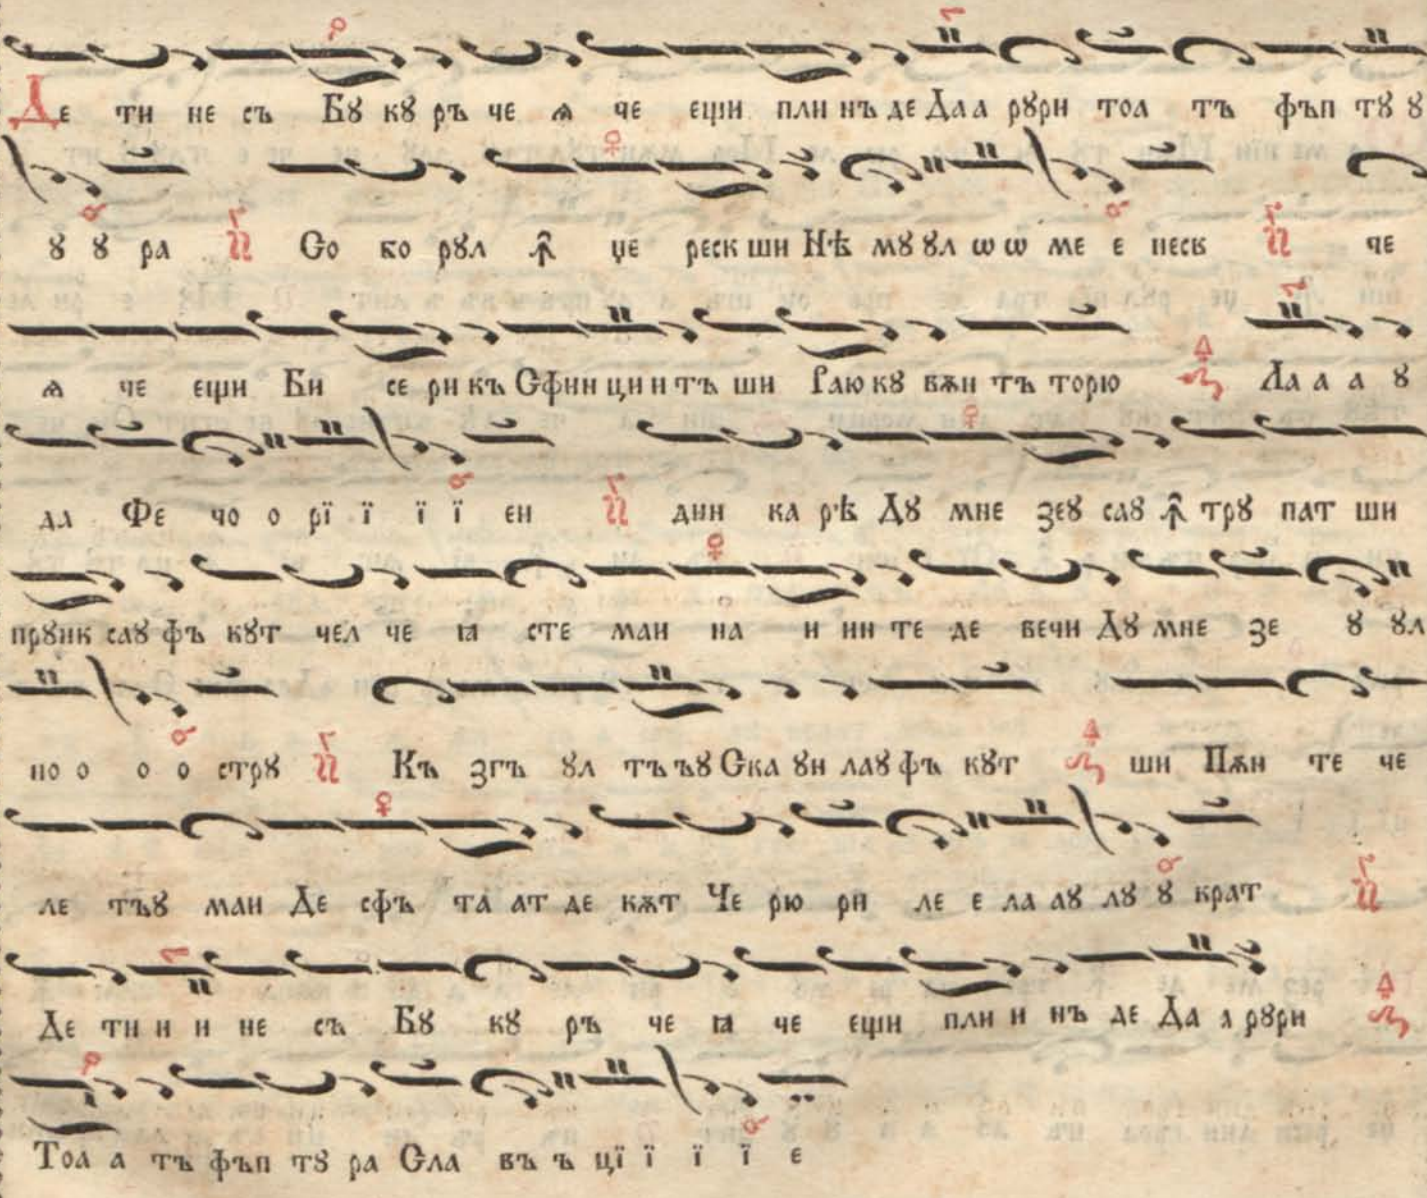 Де ти не съ Бꙋ кꙋ ръ че ѧ че ещи пли нъ де Да а рꙋри тоа тъ фъп тꙋ ꙋ
ꙋ ꙋ ра Со бо рꙋл ꙟ це реск ши Нѣ мꙋ ꙋл ѡ ѡ ме е неск че
ѧ че ещи Би се ри къ Сфин ци и тъ ши Раю кꙋ вѫн тъ торю Ла а а ꙋ
да Фе чо о рї ї ї ї ен дин ка рѣ Дꙋ мне зеꙋ саꙋ ꙟ трꙋ пат ши
прꙋнк саꙋ фъ кꙋт чел че ꙗ сте маи на и ин те де вечи Дꙋ мне зе ꙋ ꙋл
но о о о стрꙋ Къ згъ ꙋл тъꙋ Ска ꙋн лаꙋ фъ кꙋт ши Пѫн те че
ле тъꙋ маи Де сфъ та ат де кѫт Че рю ри ле е ла аꙋ лꙋ ꙋ крат
Де ти и и не съ Бꙋ кꙋ ръ че ꙗ че ещи пли и нъ де Да а рꙋри
Тоа а тъ фъп тꙋ ра Сла въ ъ цї ї ї ї е